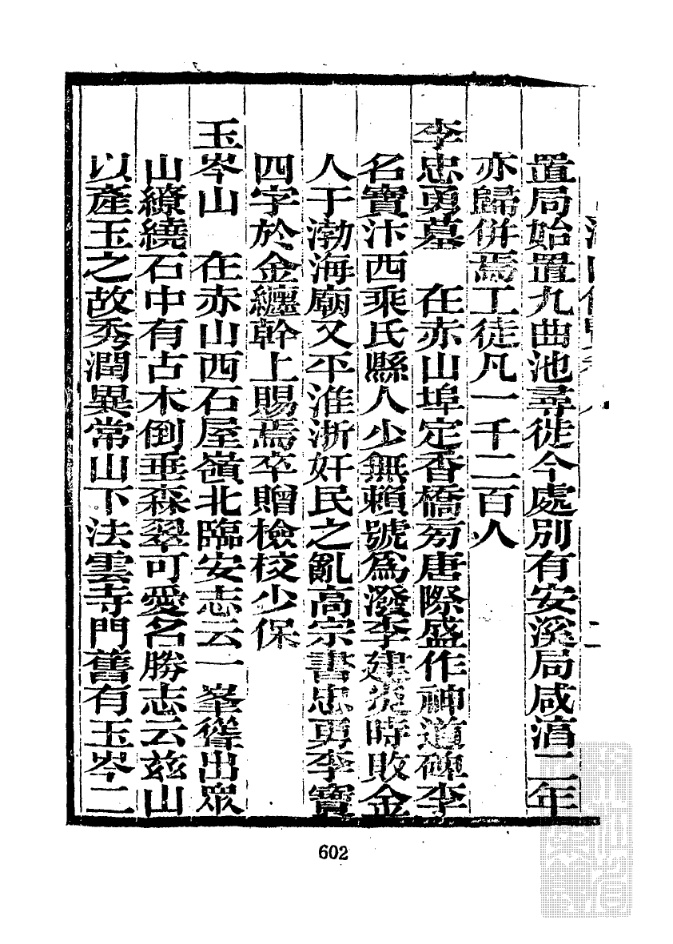 置局始置九曲池尋徙今處別有安溪局咸淳二年
亦歸併焉工徒凡一千二百人
李忠勇墓 在赤山埠定香橋旁唐際盛作神道碑李
名寶汴西乘氏縣人少無賴號爲潑李建炎時敗金
人于渤海廟又平淮浙奸民之亂高宗書忠勇李寶
四字於金纏幹上賜焉卒贈檢校少保
玉岑山 在赤山西石屋嶺北臨安志云一峯聳出眾
山繚繞石中有古木倒垂森翠可愛名勝志云玆山
以產玉之故秀潤異常山下法雲寺門舊有玉岑二
602